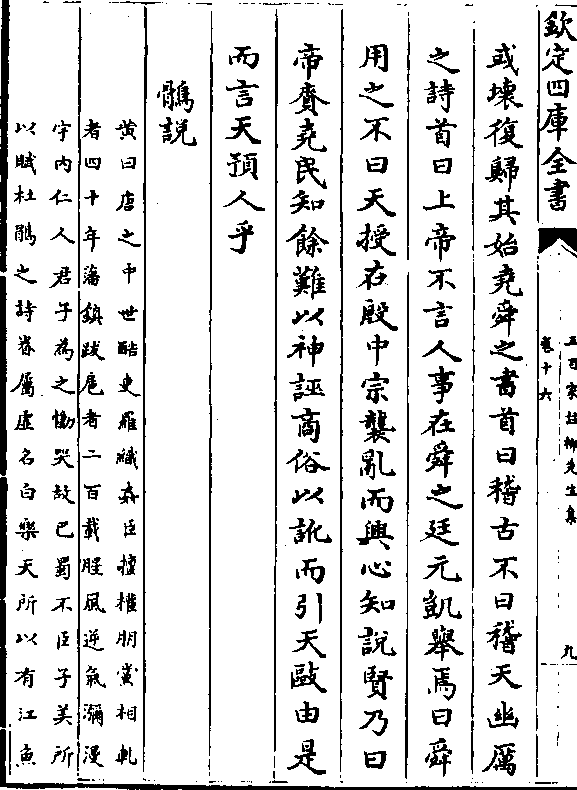 欽定四庫全書
五百家註柳先生集
卷十六
九
或壞復歸其始堯舜之書首曰稽古不曰稽天幽厲
之詩首曰上帝不言人事在舜之廷元凱舉焉曰舜
用之不曰天授在殷中宗襲亂而興心知說賢乃曰
帝賚堯民知餘難以神誣商俗以訛而引天敺由是
而言天預人乎
鶻説
黄曰唐之中世酷吏羅織姦臣擅權朋黨相軋
者四十年藩鎮跋扈者二百載腥風逆氣瀰漫
宇内仁人君子為之慟哭故巴蜀不臣子美所
以賦杜鵑之詩眷屬虚名白樂天所以有江魚